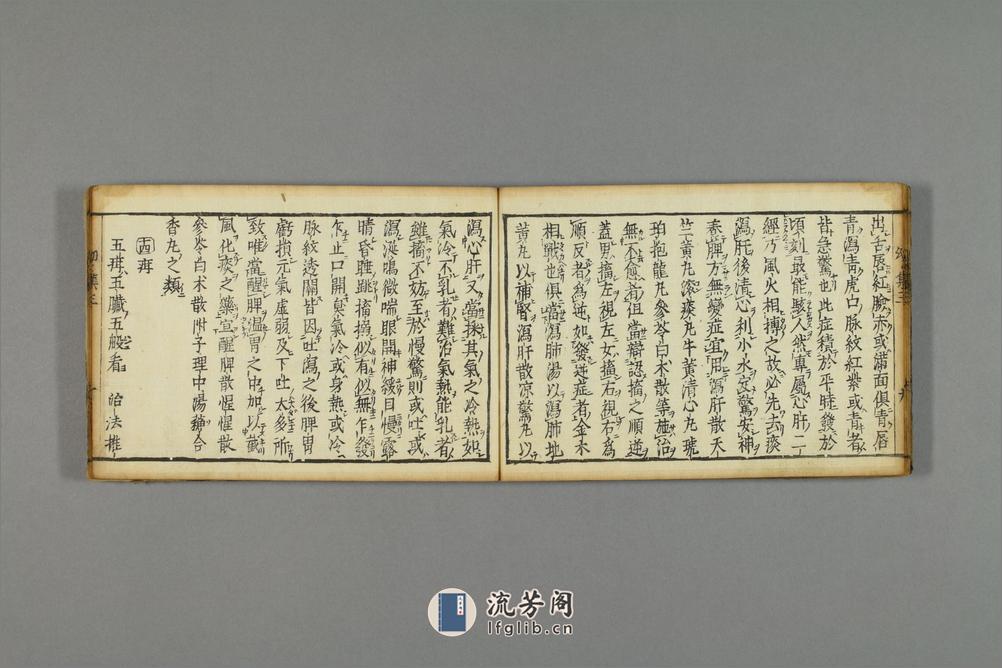 出舌唇紅臉赤或滿面俱青唇
青瀉青虎口脉紋紅紫或青者
皆急驚也此症積於平時發於
頃刻最能駭人然專屬心肝二
經乃風火相搏之故必先去痰
瀉肝後清心利小水安驚安神
養脾方無變症宜用瀉肝散天
竺黃丸滾痰丸牛黃清心丸琥
珀抱龍丸參苓白术散等施治
無不愈者但當辯認搐之順逆
蓋男搐左視左女搐右視右為
順反者為逆如發逆症者人金木
相戰也俱當瀉肺湯以瀉肺地
黃丸以補腎瀉肝散凉驚丸以
瀉心肝又當探其氣之冷熱如
氣冷不乳者難治氣熱能乳者
雖搐不妨至於慢驚則或吐或
瀉涎鳴微喘眼開神緩目慢露
睛昏睡跳搐搐似有似無乍發
乍止口開鼻氣冷或身熱或冷
脉紋透關皆因吐瀉之後脾胃
虧損元氣虛弱及下吐太多所
致唯當醒脾溫胃之中加以截
風化痰之藥宣醒脾散惺惺散
參苓白术散附子理中湯蘇合
香丸之類
五疳五臟五般看 治法推
流芳阁
lfglib.cn